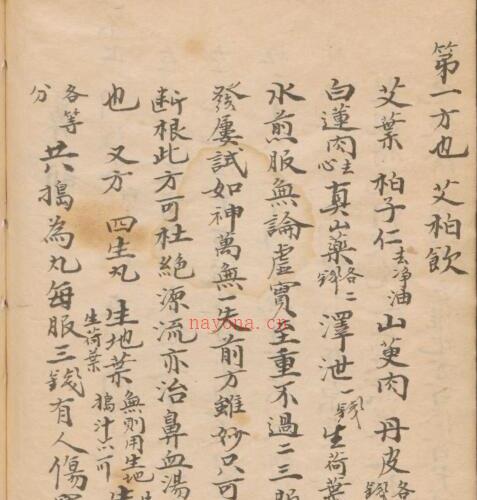 第一方也 艾柏飲
艾葉 柏子仁去淨油 山萸肉 丹皮各
白蓮肉去心 真山藥各二錢 澤泄一錢 生荷葉
水煎服無論虛實至重不過二三服
發屢試如神萬無一失前方雖妙只可
斷根此方可杜絕源流亦治鼻血湯
也 又方 四生丸 生地葉無則用生地搗汁亦可 生荷葉 生
各等分 共搗為丸每服三錢有人傷
nayona.cn